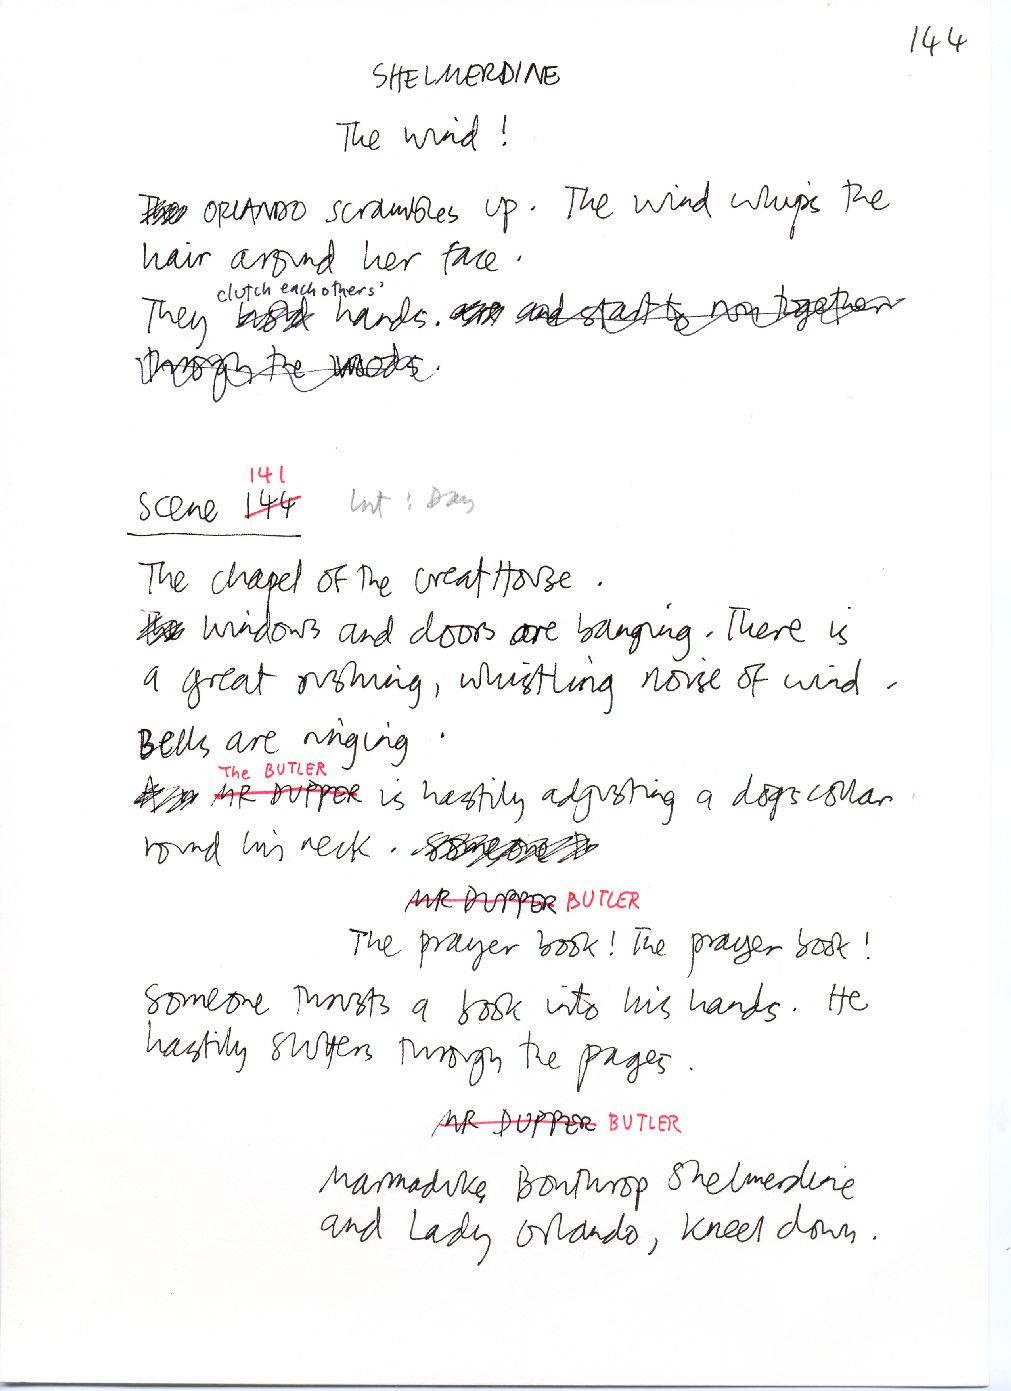 144
SHELMERDINE
The wind !
ORLANDO scrambles up. The wind whips the
hair around her face.
clutch each others'
They hold hands. and start to run together
through the woods.
141
Scene 144 Int : Day
The chapel of the Great House.
Windows and doors are banging. There is
a great rushing, whistling noise of wind.
Bells are ringing.
The BUTLER
MR DUPPER is hastily adjusting a dogscollar
round his neck. Someone
MR DUPPER BUTLER
The prayer book! The prayer book!
Someone thrusts a book into his hands. He
hastily shutters through the pages.
MR DUPPER BUTLER
Marmaduke Bonthrop Shelmerdine
and Lady Orlando, kneel down.